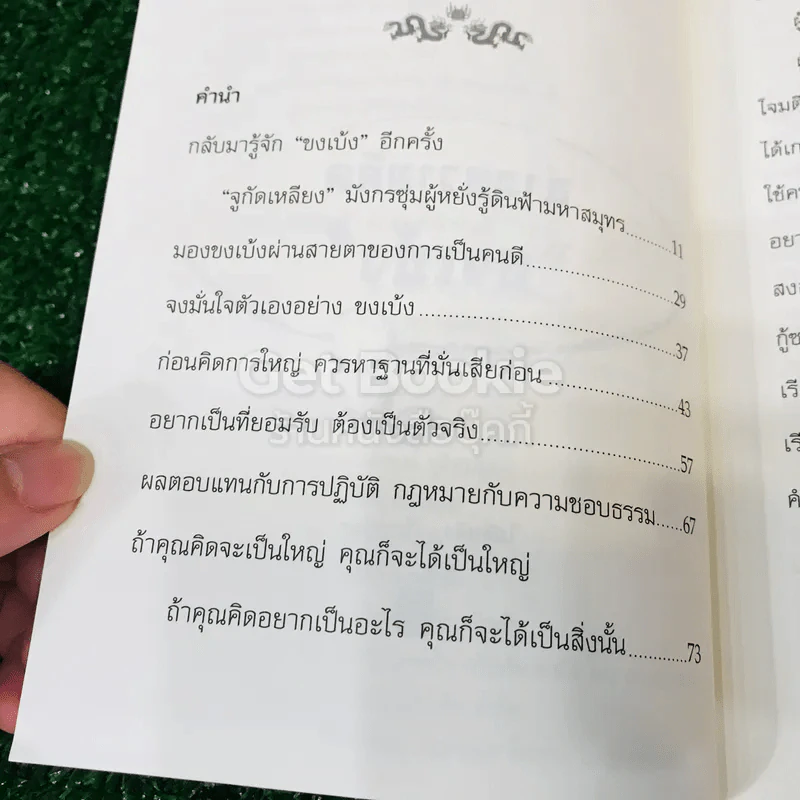 คำนำ
กลับมารู้จัก “ขงเบ้ง” อีกครั้ง
“จูกัดเหลียง” มังกรซุ่มผู้หยั่งรู้ดินฟ้ามหาสมุทร..........11
มองขงเบ้งผ่านสายตาของการเป็นคนดี..........29
จงมั่นใจตัวเองอย่าง ขงเบ้ง..........37
ก่อนคิดการใหญ่ ควรหาฐานที่มั่นเสียก่อน..........43
อยากเป็นที่ยอมรับ ต้องเป็นตัวจริง..........57
ผลตอบแทนกับการปฏิบัติ กฎหมายกับความชอบธรรม......67
ถ้าคุณคิดจะเป็นใหญ่ คุณก็จะได้เป็นใหญ่
ถ้าคุณคิดอยากเป็นอะไร คุณก็จะได้เป็นสิ่งนั้น..........73
Get Bookie
ร้านหนังสือบุ๊คกี้
โจมตี
ได้เก
ใช้คว
อยา
กู้ช
เรี
เรี